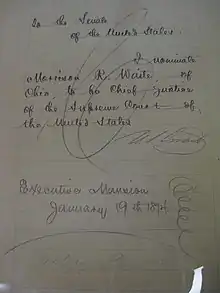 To the Senate
of the United States.
I nominate
Morrison R. Waite, of
Ohio, to be Chief Justice
of the Supreme Court of
the United States
U. S. Grant
Executive Mansion
January 19th 1874